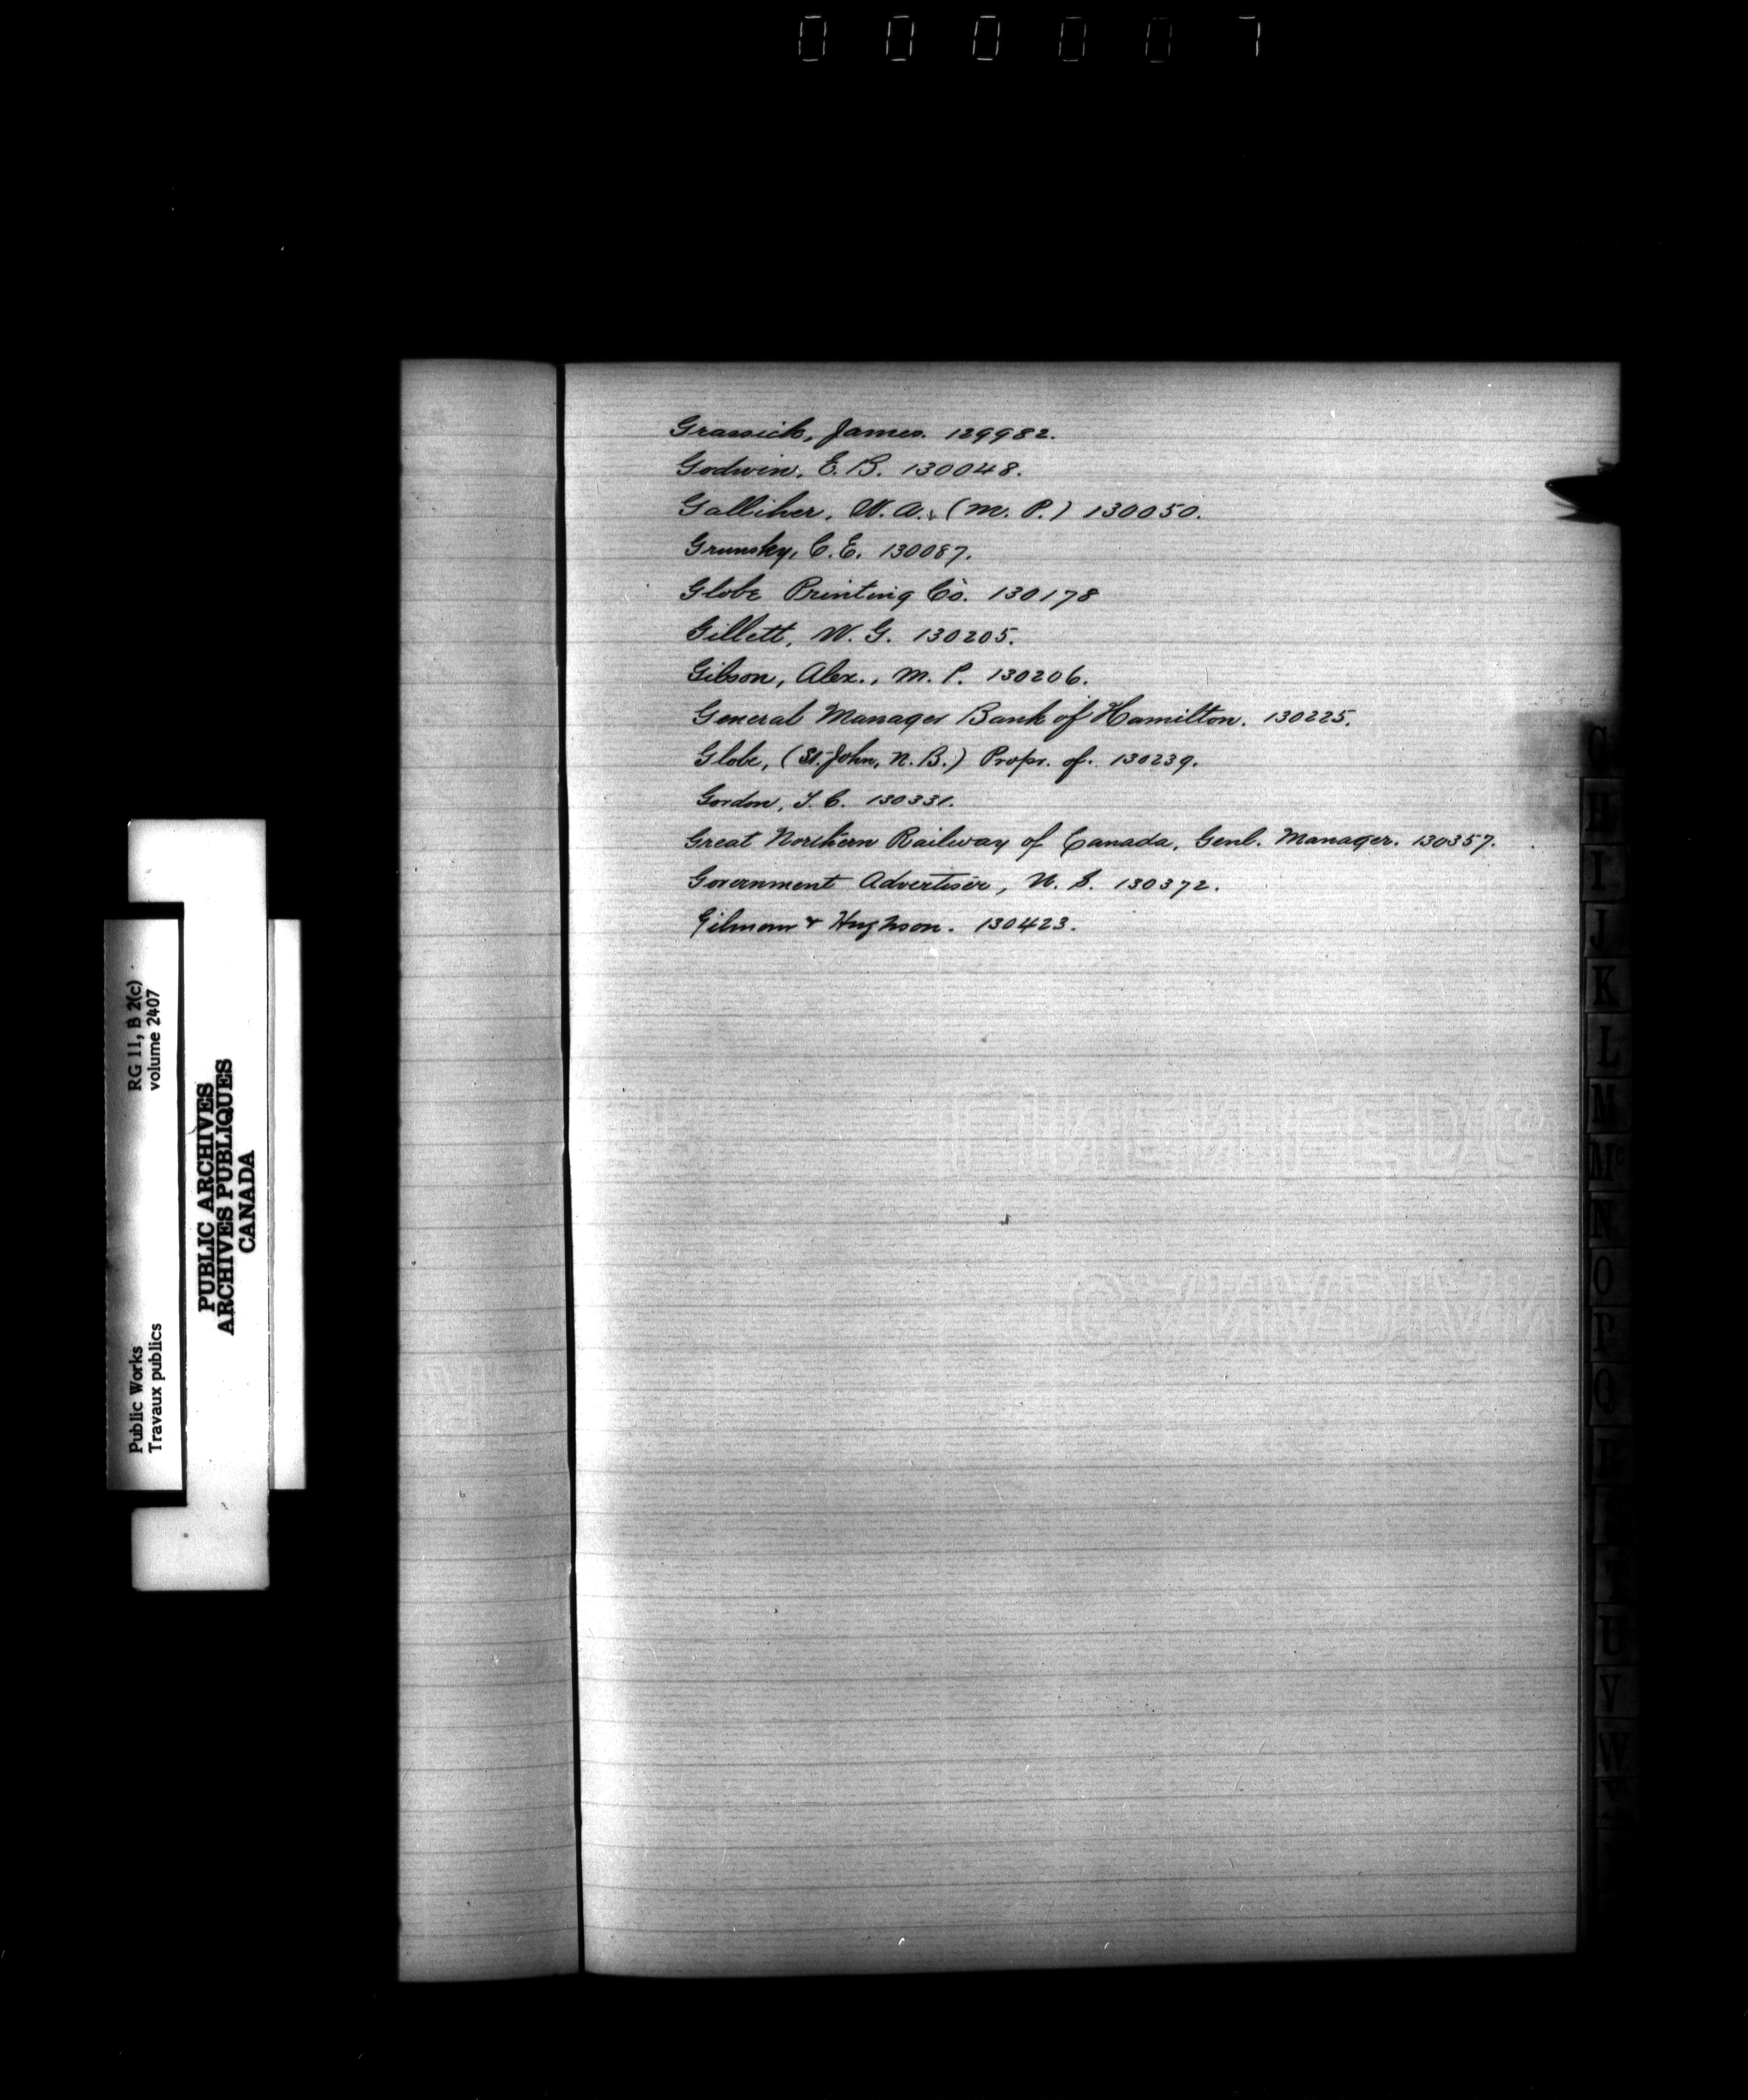 000007
Grassick, James. 129982.
Godwin, E. B. 130048.
Galliher, W. A., (M. P.) 130050.
Grunsky, C. E. 130087.
Globe Printing Co. 130178
Gillett, W. G. 130205.
Gibson, Alex., M. P. 130206.
General Manager Bank of Hamilton. 130225.
Globe, (St. John, N. B.) Propr. of. 130239.
Gordon, T. C. 130331.
Great Northern Railway of Canada, Genl. Manager. 130357.
Government Advertiser, N. S. 130372.
Gilmour & Hughson. 130423.
G
H
I
J
K
L
M
Mc
N
O
P
Q
R
T
U
V
W
Public Works
Travaux publics
RG 11, B 2(c)
volume 2407
PUBLIC ARCHIVES
ARCHIVES PUBLIQUES
CANADA